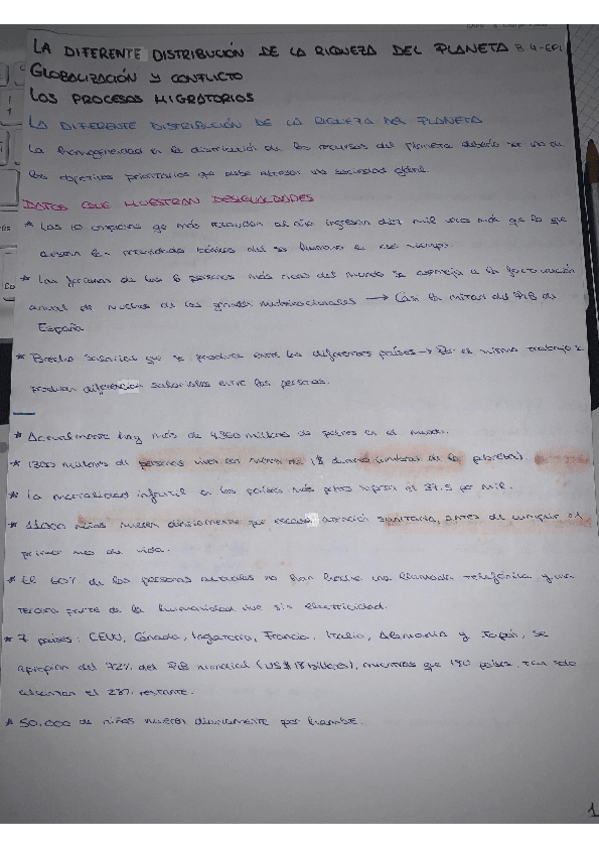 LA DIFERENTE DISTRIBUCIÓN DE LA RIQUEZA DEL PLANETA B.4-EPI
GLOBALIZACIÓN Y CONFLICTO
LOS PROCESOS MIGRATORIOS
LA DIFERENTE DISTRIBUCIÓN DE LA RIQUEZA DEL PLANETA
La homogeneidad en la distribución de los recursos del planeta debería ser uno de
los objetivos prioritarios que debe alcanzar una sociedad global.
DATOS QUE MUESTRAN DESIGUALDADES
* Las 10 empresas que más recaudan al año ingresan diez mil veces más que lo que
las necesidades básicas del ser humano en ese tiempo.
* Las fortunas de las 6 personas más ricas del mundo se asemeja a la facturación
anual de muchas de las grandes multinacionales → Casi la mitad del PIB de
España
* Brecha salarial que se produce entre los diferentes países → el mismo trabajo se
producen diferencias salariales entre las personas.
* Actualmente hay más de 4360 millones de pobres en el mundo.
* 1300 millones de personas viven con menos de 1$ diario (umbral de la pobreza).
* La mortalidad infantil en los países más pobres supera el 37.5 por mil.
* 11000 niños mueren diariamente por escasa atención sanitaria, antes de cumplir el
primer mes de vida.
* El 60% de las personas actuales no han hecho una llamada telefónica y una
tercera parte de la humanidad vive sin electricidad.
* 7 países: EEUU, Canadá, Inglaterra, Francia, Italia, Alemania y Japón, se
apropian del 72% del PIB mundial (US$ 18 billones), mientras que 190 países, tan solo
alcanzan el 28% restante.
* 50.000 de niños mueren diariamente por hambre.
1